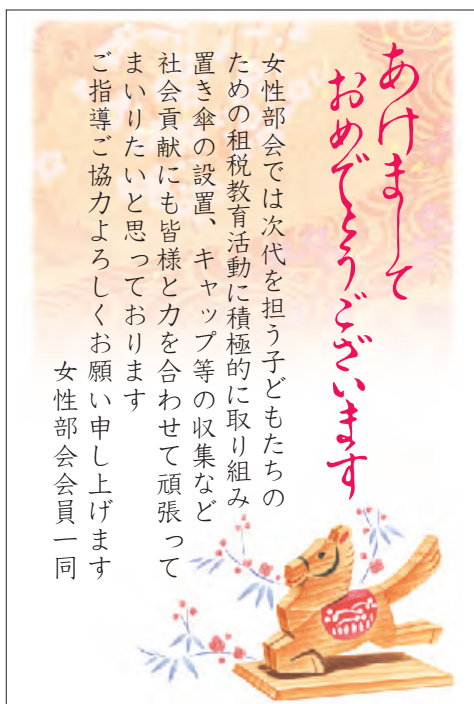 あけまして
おめでとうございます
女性部会では次代を担う子どもたちの
ための租税教育活動に積極的に取り組み
置き傘の設置、キャップ等の収集など
社会貢献にも皆様と力を合わせて頑張って
まいりたいと思っております
ご指導ご協力よろしくお願い申し上げます
女性部会会員一同